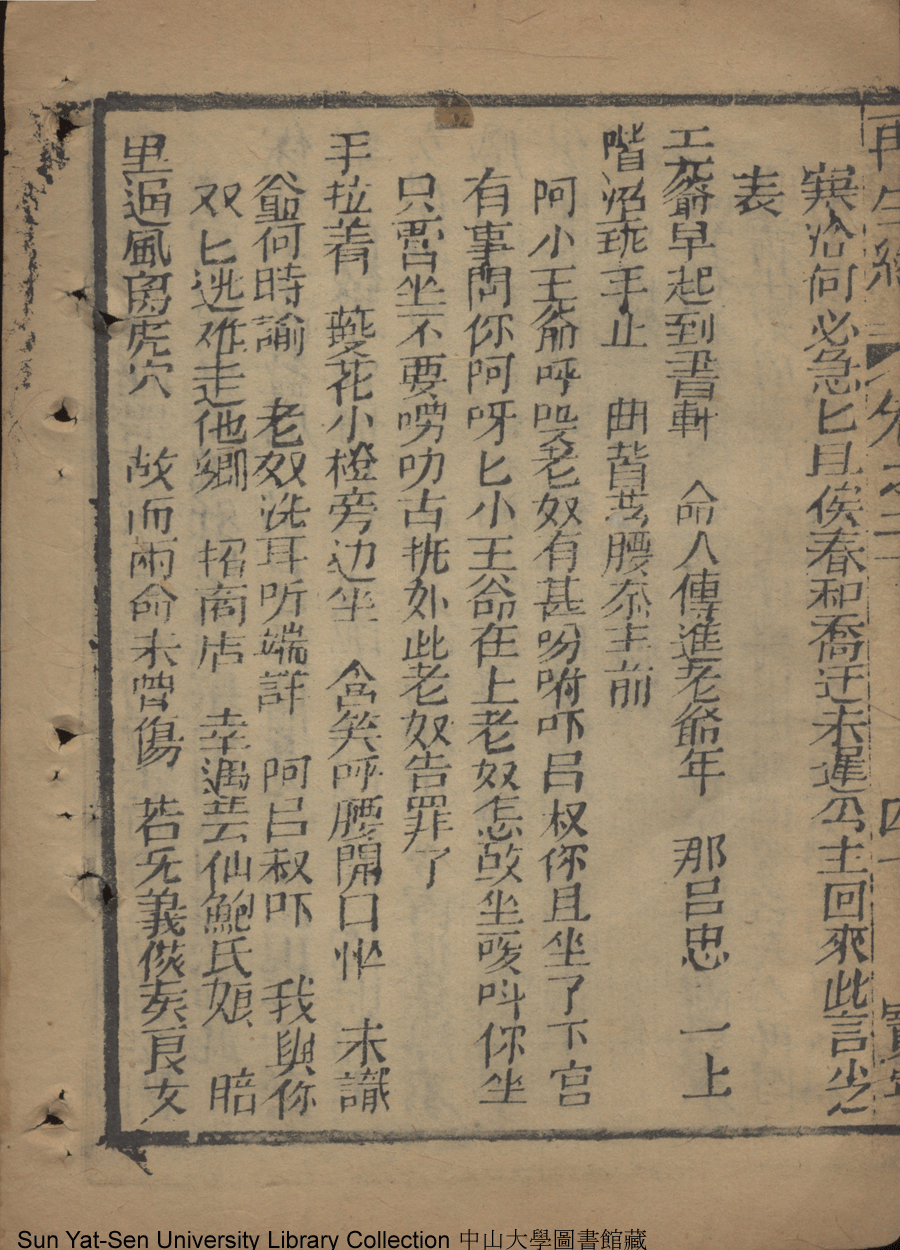 再生緣 卷之二 四十
寒冷何必急匕且俟春和喬迁未遲公主回來此言少
表
王爺早起到書軒 命人傳進老爺年 那呂忠 一上
階沿珑手止 曲背弯腰奈主前
阿小王爺呼喚老奴有甚吩咐吓呂叔你且坐了下宮
有事問你阿呀匕小王爺在上老奴怎敢坐嗳呌你坐
只靣坐不要嘮叨古抚如此老奴告罪了
手拉着 夔花小橙旁边坐 含笑呼腰開口 未識
爺何時諭 老奴洗耳听端詳 阿呂叔吓 我與你
双匕逃难走他鄉 招商店 幸遇芸仙鮑氏娘 暗
里通風离虎穴 故而兩命未曾傷 若无義俠良女
Sun Yat-Sen University Library Collection 中山大學圖書館藏